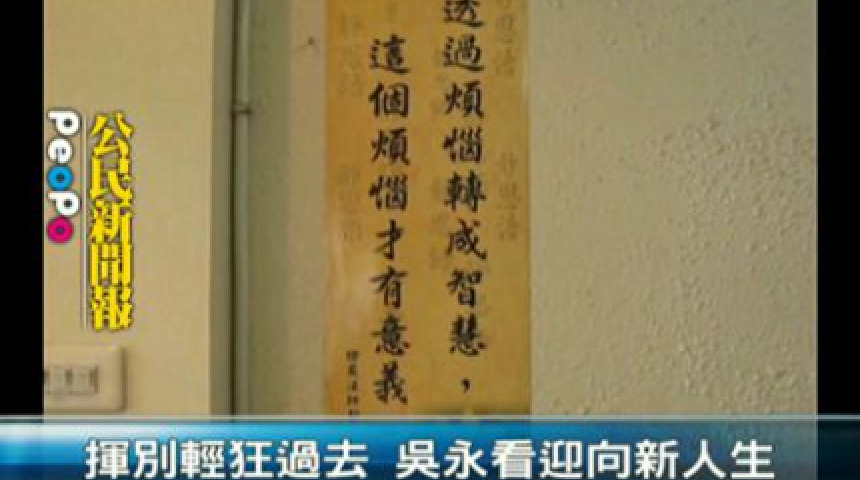 透過煩惱轉成智慧，
這個煩惱才有意義
靜思語
PeoPo
公民新聞報
揮別輕狂過去 吳永看迎向新人生